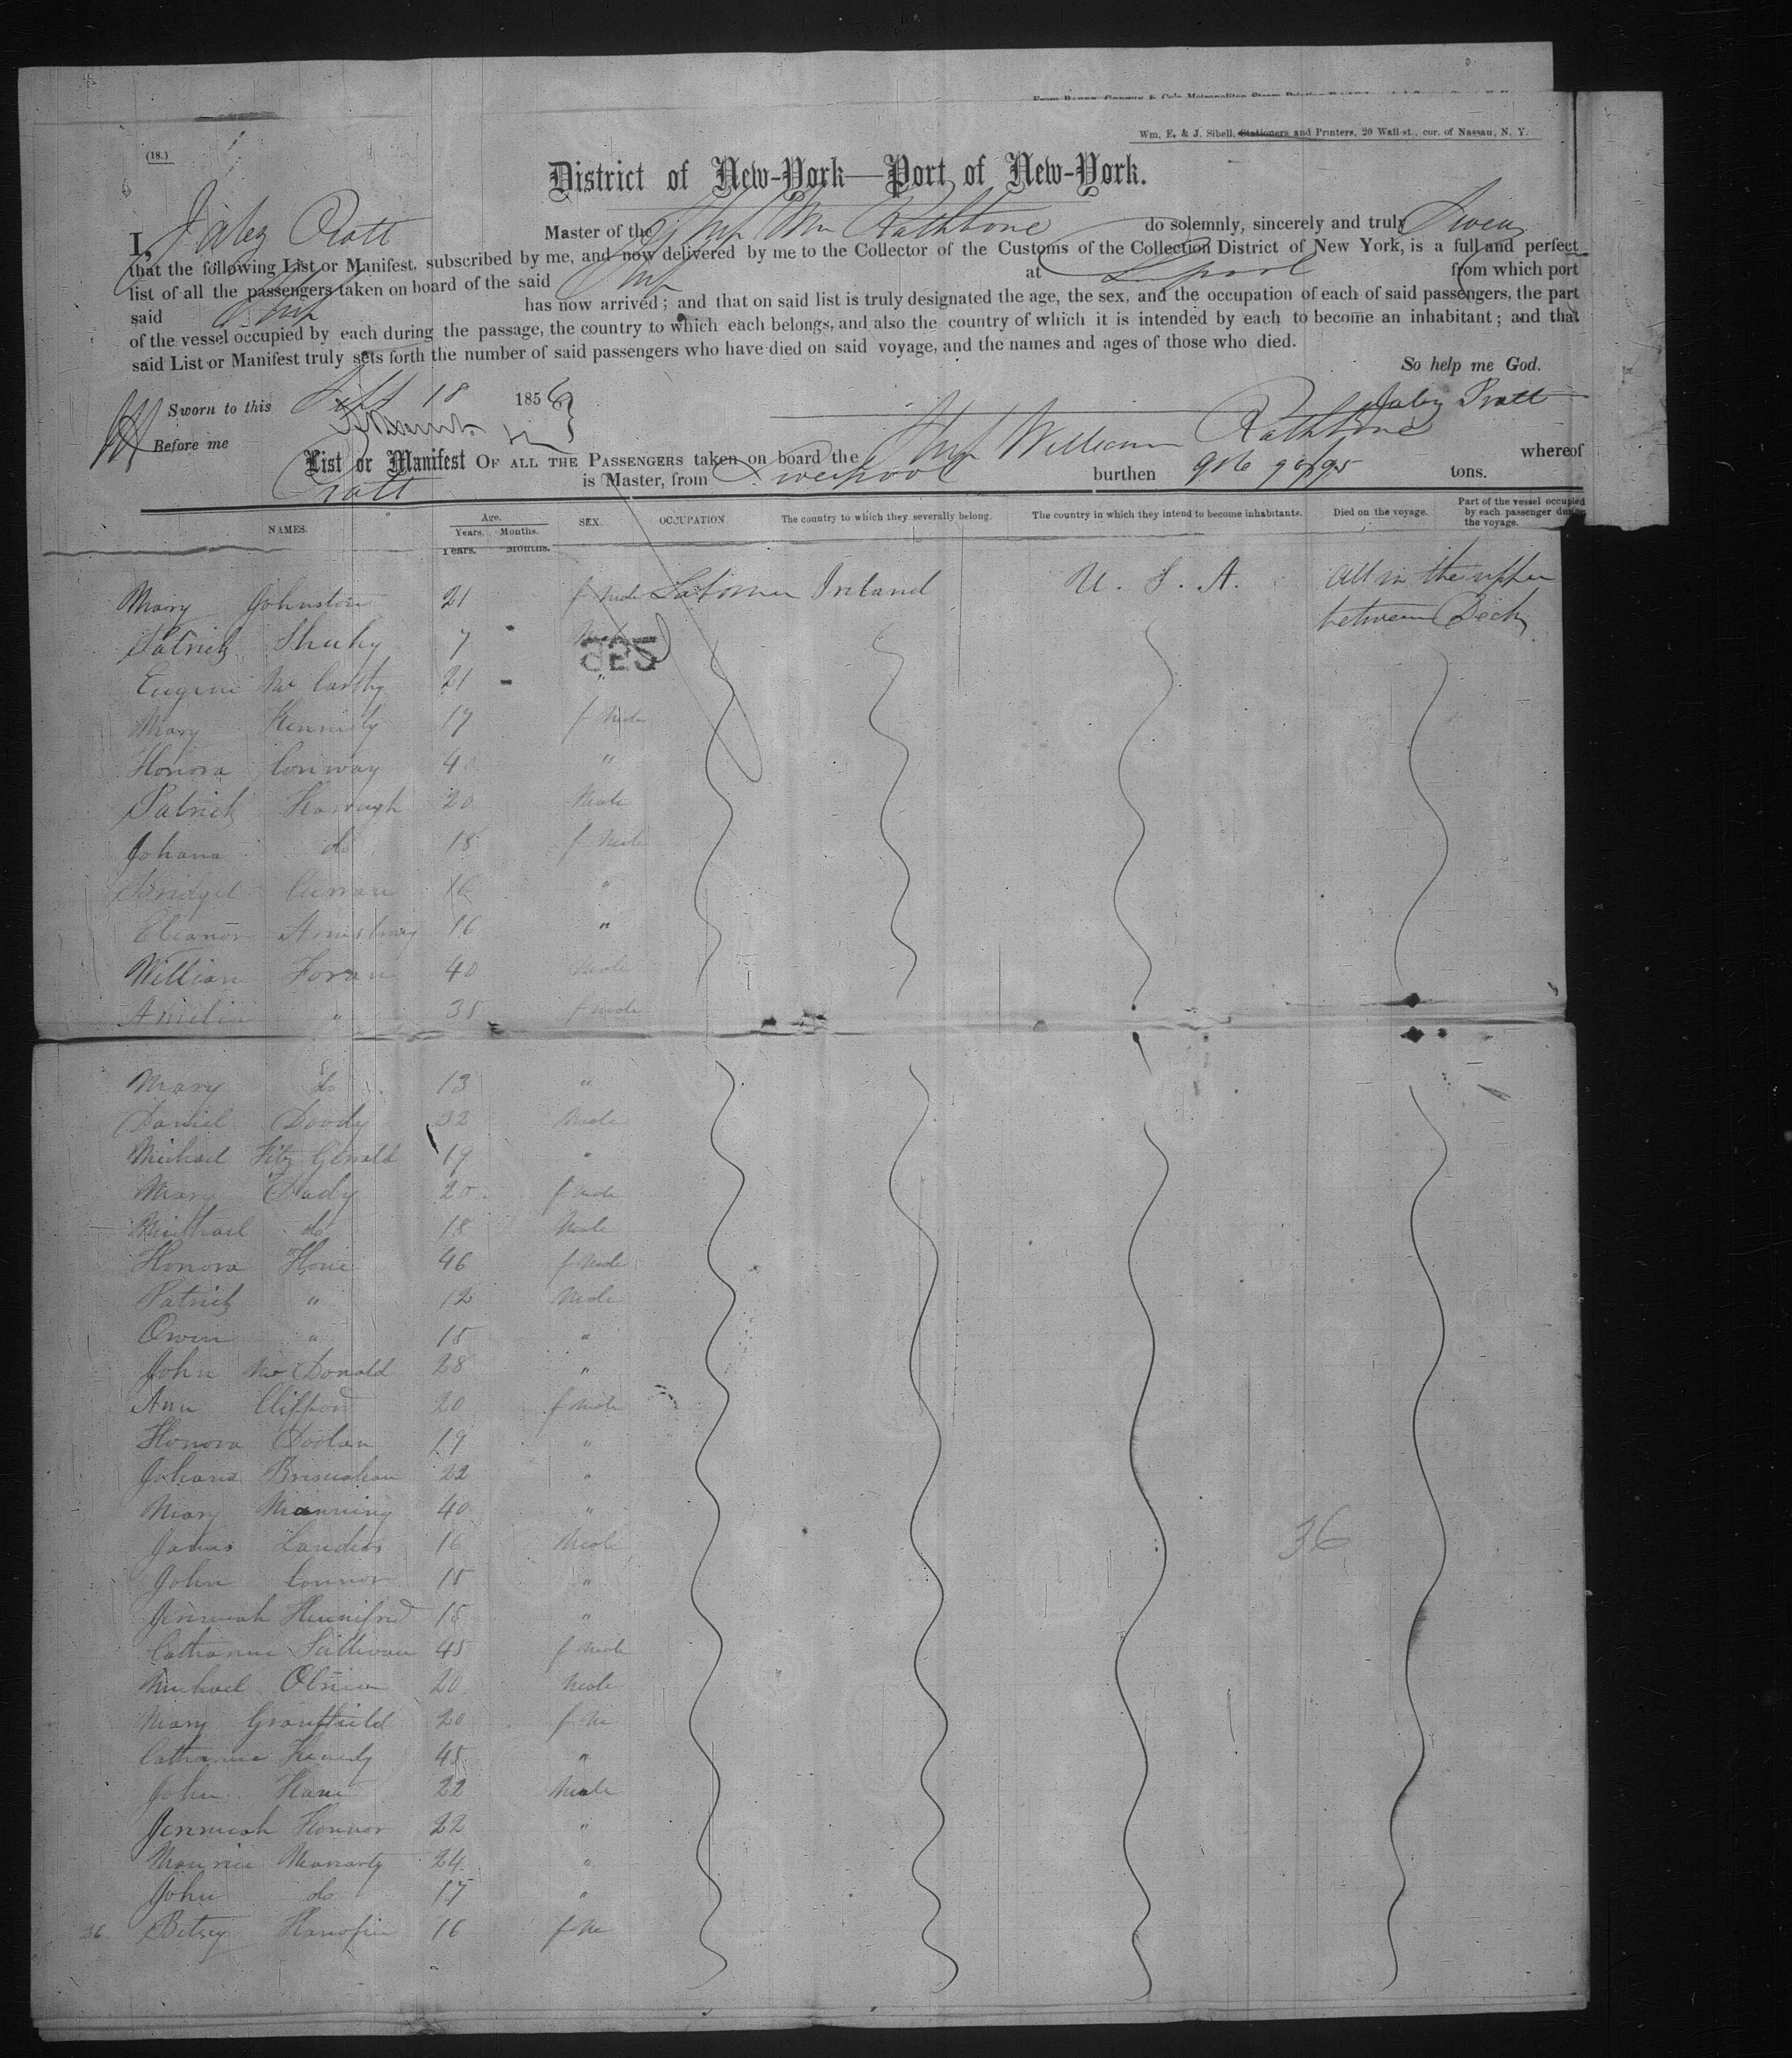 Wm. E. & J. Sibell, Stationers and Printers, 20 Wall-st., cor. of Nassau, N. Y.
(18.)
District of New-York—Port of New-York.
I, Jabez Pratt Master of the Ship Wm Rathbone do solemnly, sincerely and truly Swear
that the following List or Manifest, subscribed by me, and now delivered by me to the Collector of the Customs of the Collection District of New York, is a full and perfect
list of all the passengers taken on board of the said Ship at Lpool from which port
said Ship has now arrived; and that on said list is truly designated the age, the sex, and the occupation of each of said passengers, the part
of the vessel occupied by each during the passage, the country to which each belongs, and also the country of which it is intended by each to become an inhabitant; and that
said List or Manifest truly sets forth the number of said passengers who have died on said voyage, and the names and ages of those who died.
So help me God.
Sworn to this 18 1856
Jabez Pratt
Before me
List or Manifest OF ALL THE PASSENGERS taken on board the Ship William Rathbone whereof
Pratt is Master, from Liverpool burthen tons.
NAMES. Age. Years. Months. SEX. OCCUPATION The country to which they severally belong. The country in which they intend to become inhabitants. Died on the voyage. Part of the vessel occupied by each passenger during the voyage.
Years. Months.
Mary Johnston 21 f Male Laborer Ireland U. S. A. All in the upper
between Deck
Patrick Sheehy 7 Male
Eugene Mc Carthy 21 "
Mary Kennedy 17 f Male
Honora Conway 40 "
Patrick 20 Male
Johana do 18 f Male
Bridget Curran 16 "
Eleanor Armstrong 16 "
William Foran 40 Male
Amelia " 35 f Male
Mary do 13 "
Daniel Doody 32 Male
Michael Fitz Gerald 19 "
Mary 20 f Male
Michael do 18 Male
Honora 46 f Male
Patrick " 12 Male
Owen " 15 "
John Mc Donald 28 "
Ann Clifford 20 f Male
Honora Doolan 19 "
Johana Bresnahan 22 "
Mary Manning 40 "
James Landers 16 Male
36
John Connor 15 "
Jeremiah 15 "
Catharine Sullivan 45 f Male
Michael Obrien 20 Male
Mary 20 f Me
Catharine 45 "
John 22 Male
Jeremiah 22 "
Maurice Moriarty 24 "
John do 17 "
36 Betsey Hanofin 16 f Me